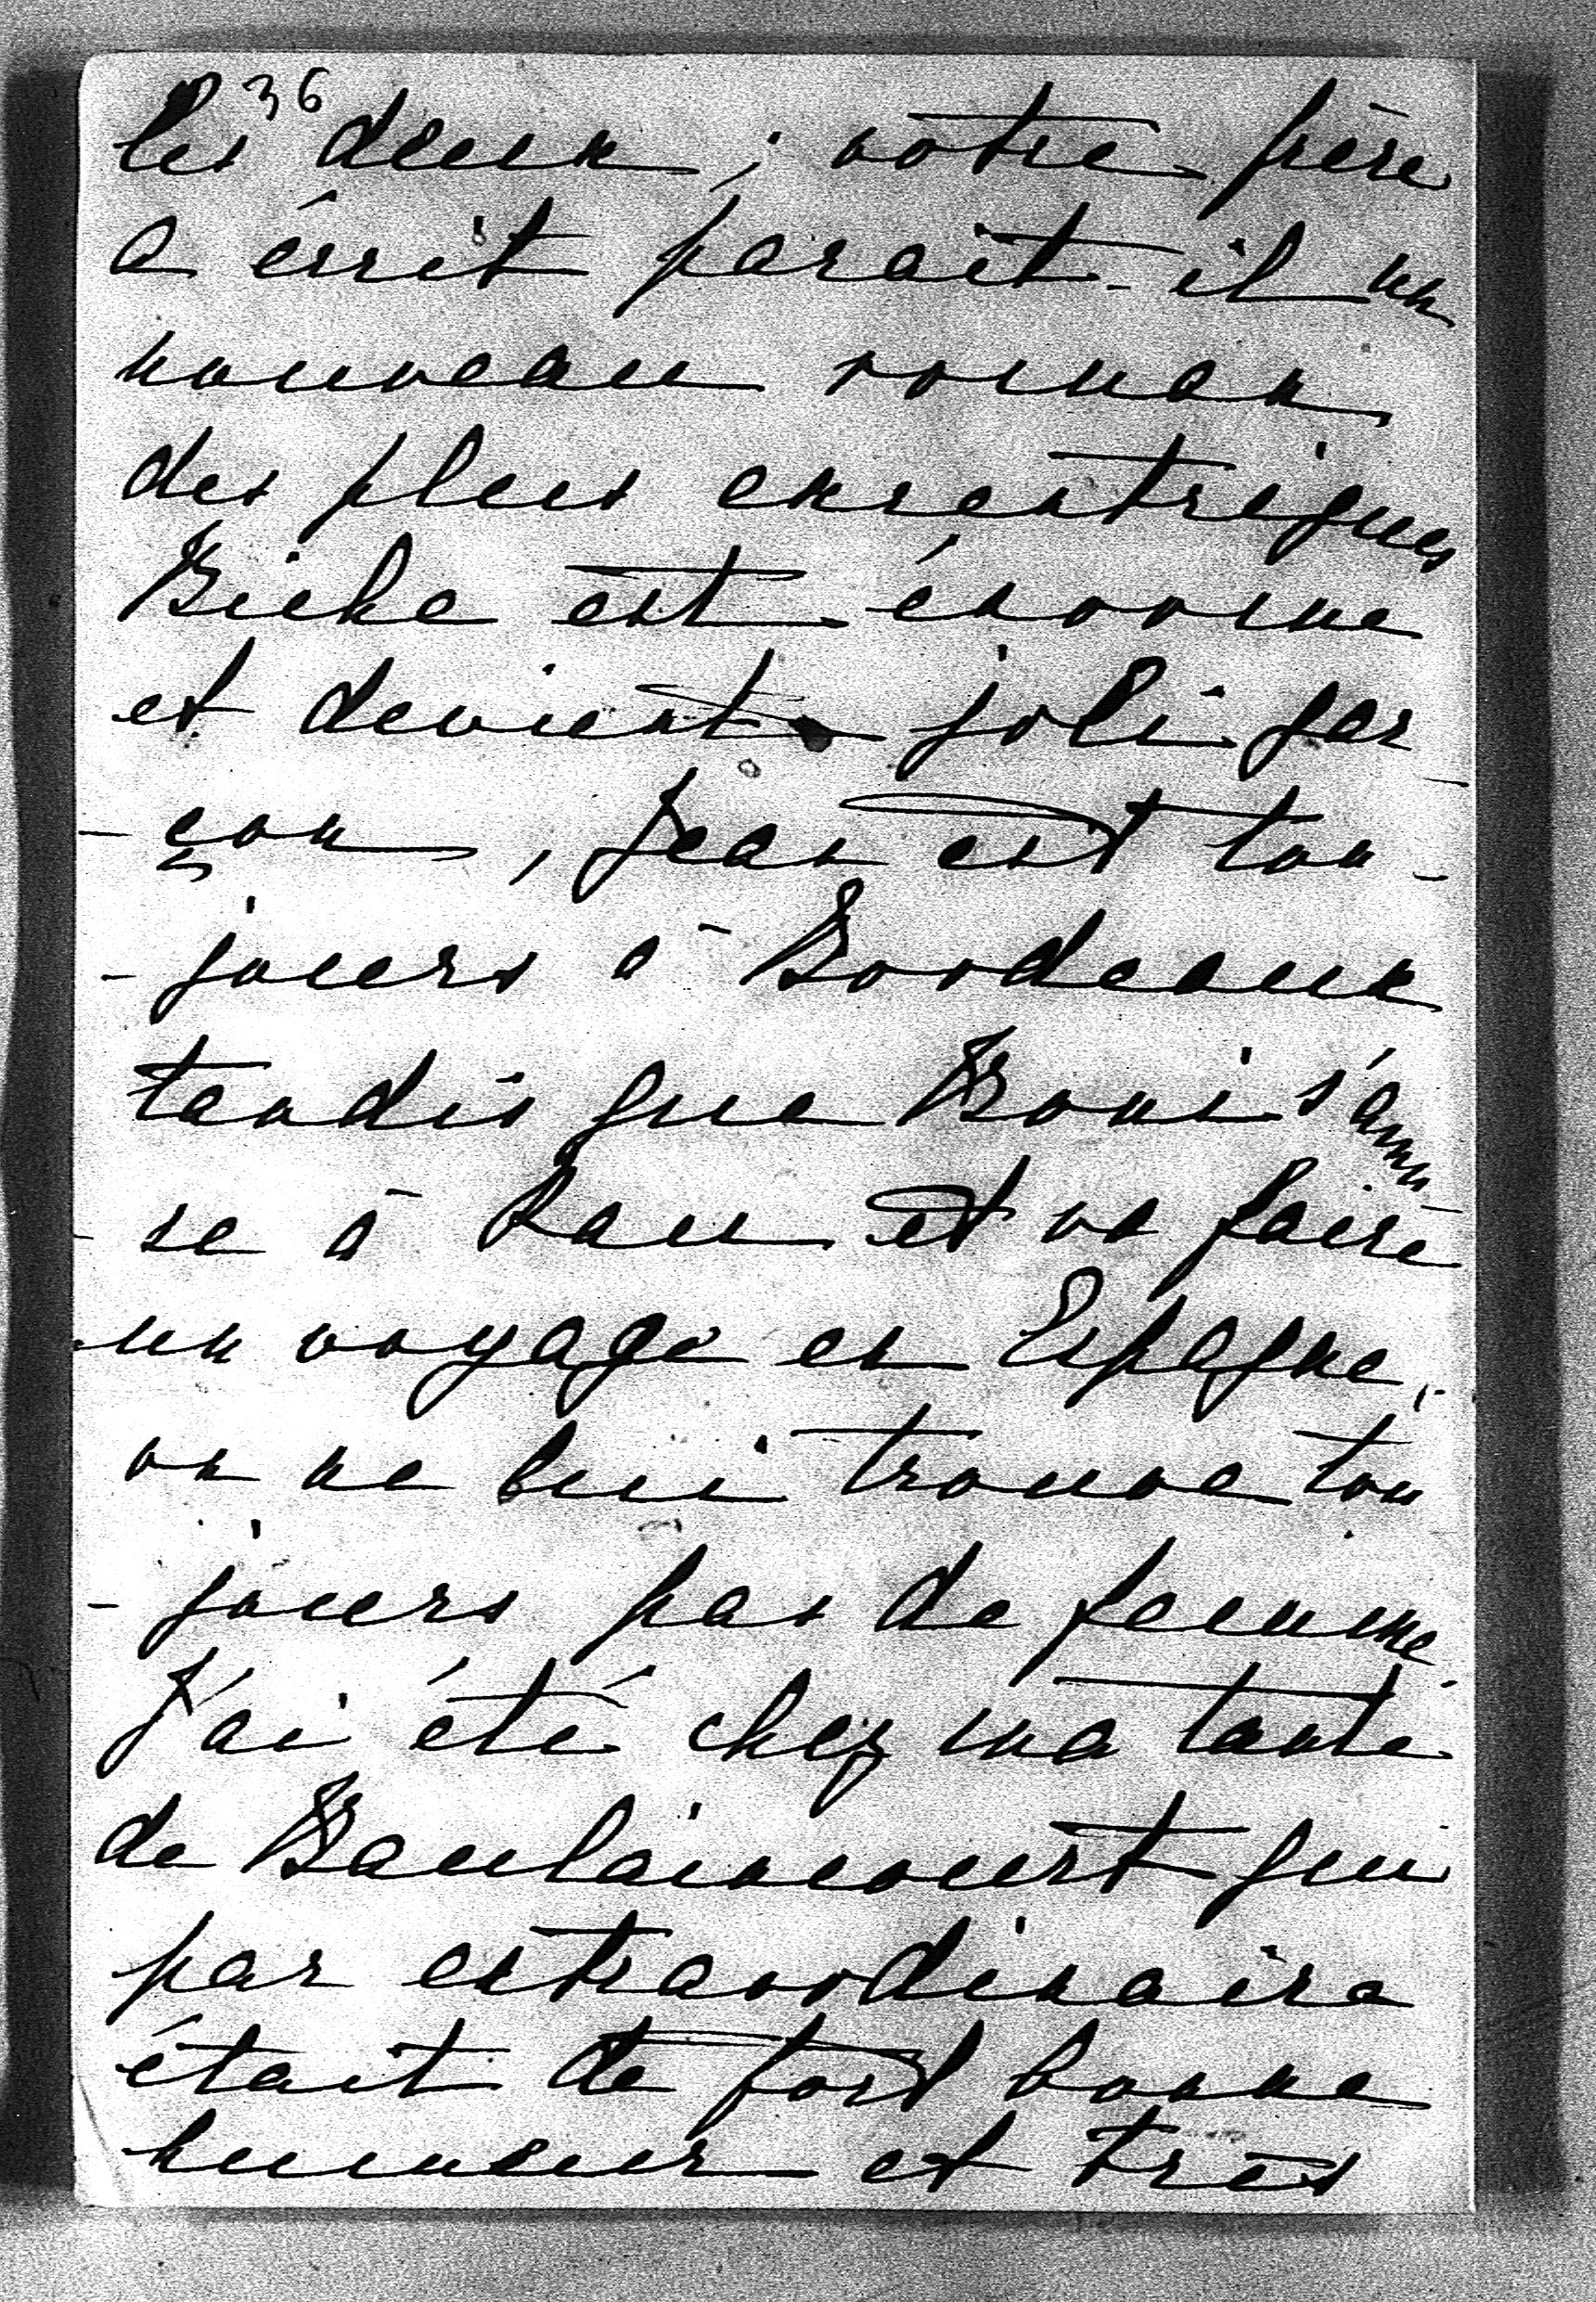 36
les deux ; votre frère
a écrit parait-il un
nouveau roman
des plus excentriques
Biche est énorme
et devient joli gar
- çon, Jean est tou -
- jours à Bordeaux
tandis que Boni s'amu
- se à Pau et va faire
un voyage en Espagne,
on ne lui trouve tou
- jours pas de femme
J'ai été chez ma tante
de Baulaincourt qui
par extraordinaire
était de fort bonne
humeur et très